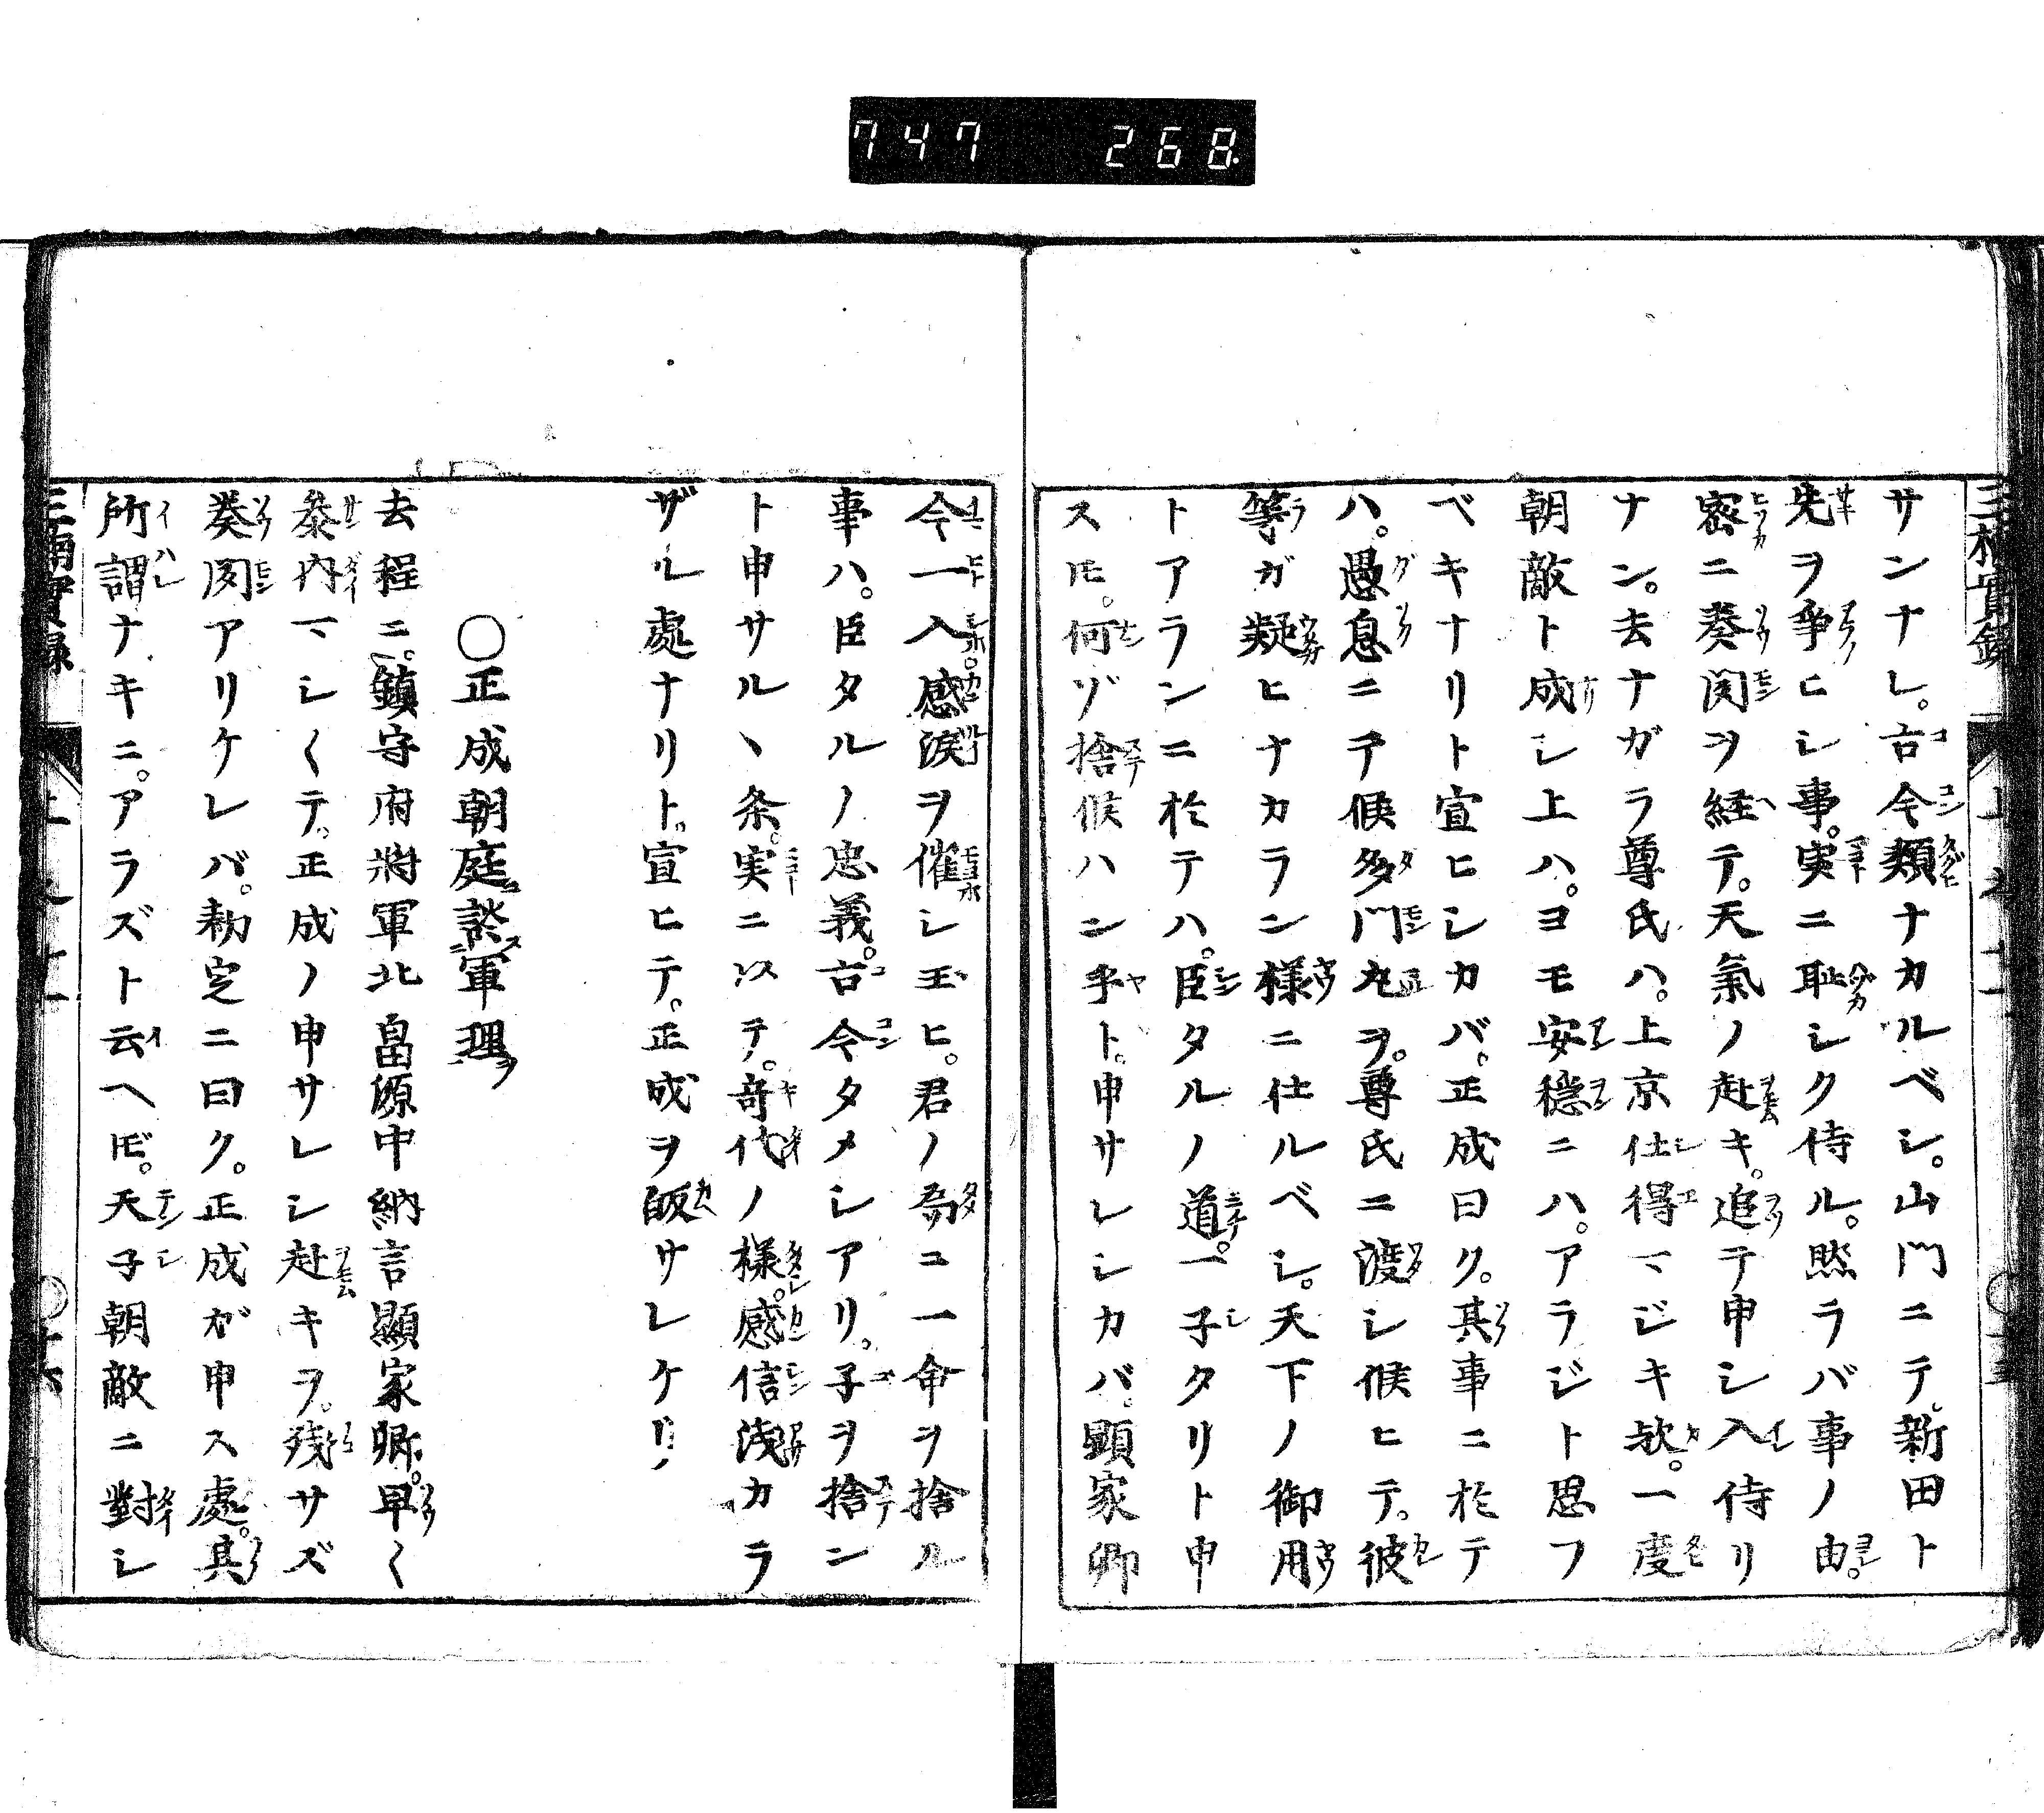 747 268
サンナレ。古今類ナカルベシ。山門ニテ。新田ト
先ヲ爭ヒシ事。実ニ耻シク侍ル。然ラバ事ノ由。
密ニ奏聞ヲ経テ。天氣ノ赴キ。追テ申シ入侍リ
ナン。去ナガラ尊氏ハ。上京仕得マジキ欤。一度
朝敵ト成シ上ハ。ヨモ安穏ニハ。アラジト思フ
ベキナリト宣ヒシカバ。正成曰ク。其事ニ於テ
ハ。愚息ニテ候多門丸ヲ。尊氏ニ渡シ候ヒテ。彼
等ガ疑ヒナカラン様ニ仕ルベシ。天下ノ御用
トアランニ於テハ。臣タルノ道。一子タリト申
スモ。何ゾ捨候ハン乎ト。申サレシカバ。顕家卿
今一入感涙ヲ催シ玉ヒ。君ノ為ニ一命ヲ捨ル
事ハ。臣タルノ忠義。古今タメシアリ。子ヲ捨ン
ト申サルヽ条。実ニ以テ。奇代ノ様。感信浅カラ
ザル處ナリト。宣ヒテ。正成ヲ皈サレケリ
〇正成朝庭談軍理
去程ニ。鎮守府将軍北畠源中納言顯家卿。早く
叅内マシくテ。正成ノ申サレシ赴キヲ。残サズ
奏聞アリケレバ。勅定ニ曰ク。正成ガ申ス處。其
所謂ナキニ。アラズト云ヘ𪜈。天子朝敵ニ對シ
三楠實録